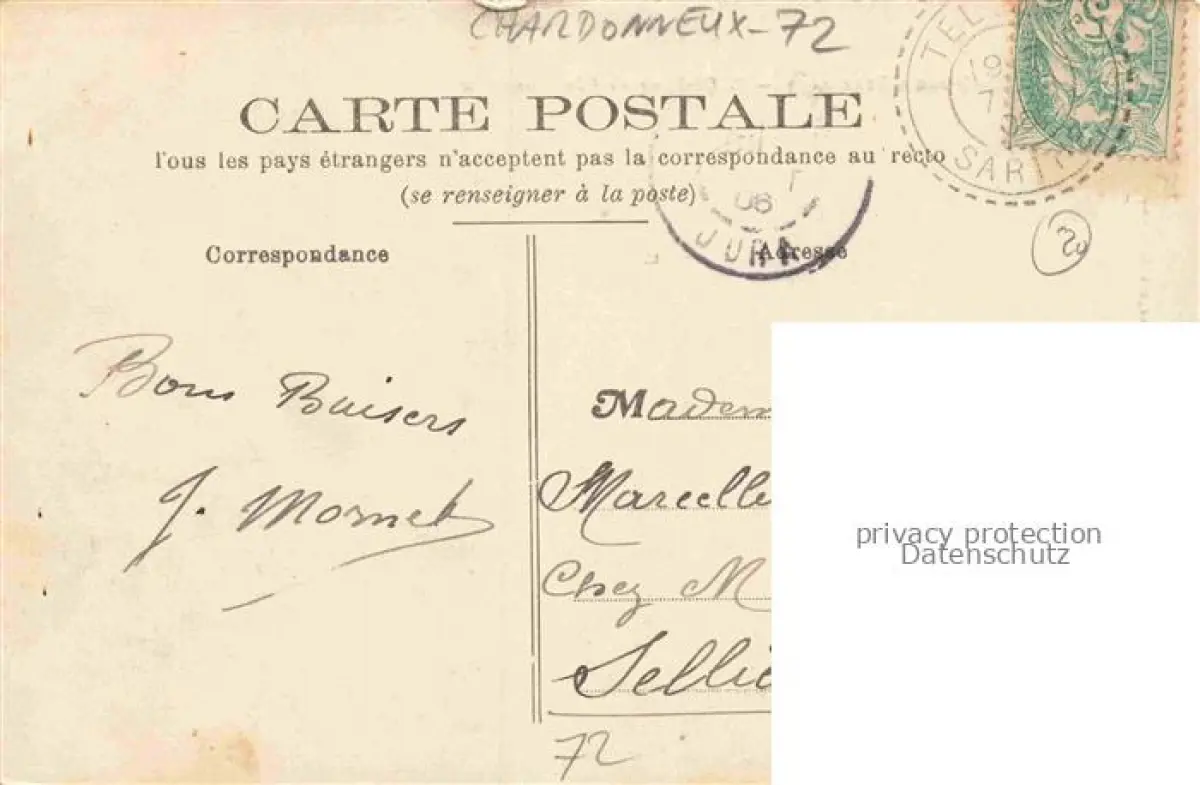 CHARDONNEUX-72
CARTE POSTALE
Tous les pays étrangers n'acceptent pas la correspondance au recto
(se renseigner à la poste)
TEL
19
7
SARTHE
06
JURA
20
Correspondance
Adresse
Bons Baisers
J. Mornet
Madem
Marcelle
Chez M
Selliè
72
privacy protection
Datenschutz